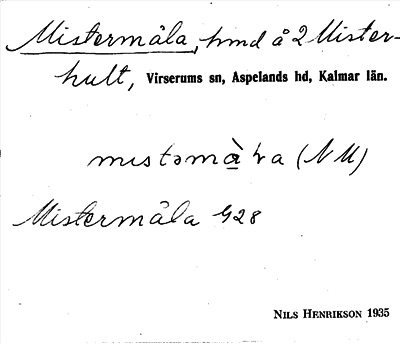 Mistermåla, hmd å 2 Mister-
hult, Virserums sn, Aspelands hd, Kalmar län.
(N M)
Mistermåla G28
NILS HENRIKSON 1935